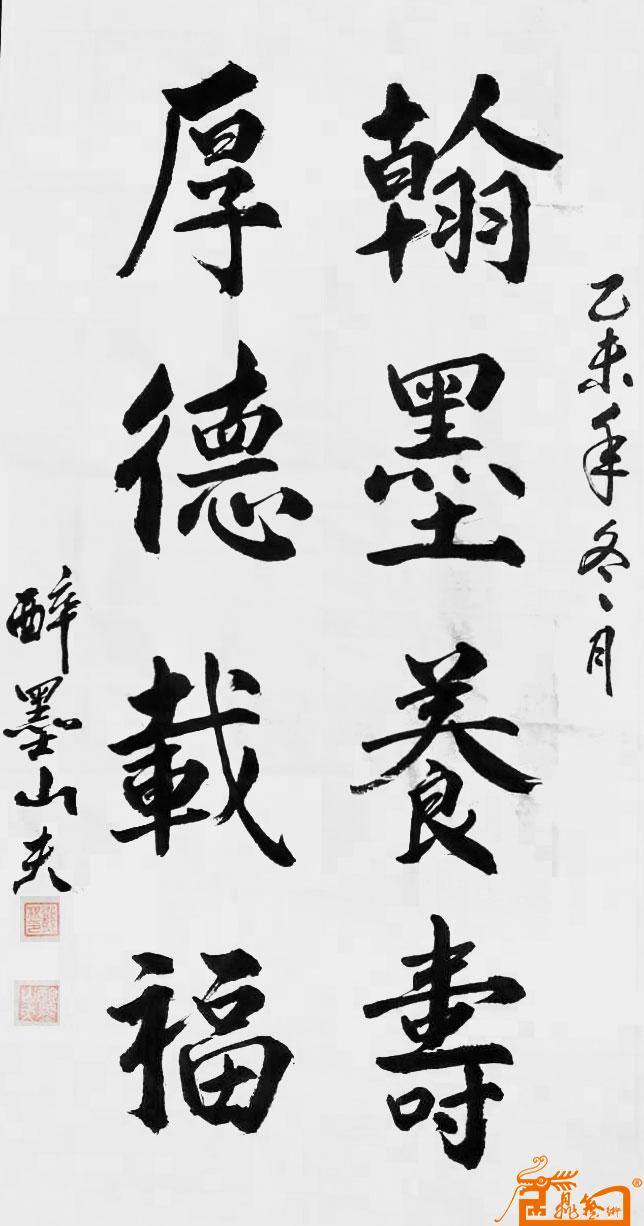 乙未年冬月
翰墨養壽
厚德載福
醉墨山夫